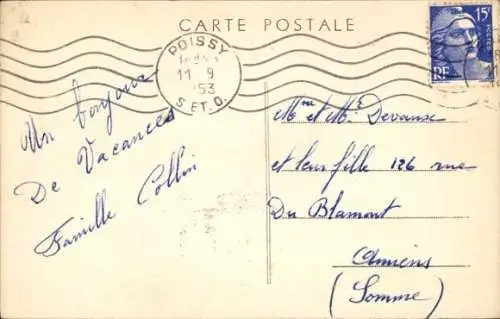 CARTE POSTALE
POISSY
11 - 9
1953
S. ET. O.
15F
POSTES
RF
Un bonjour
De Vacances
Famille Collin
Mme et Mr Devaux
et leur fille 126 rue
Du Blamont
Amiens
(Somme)